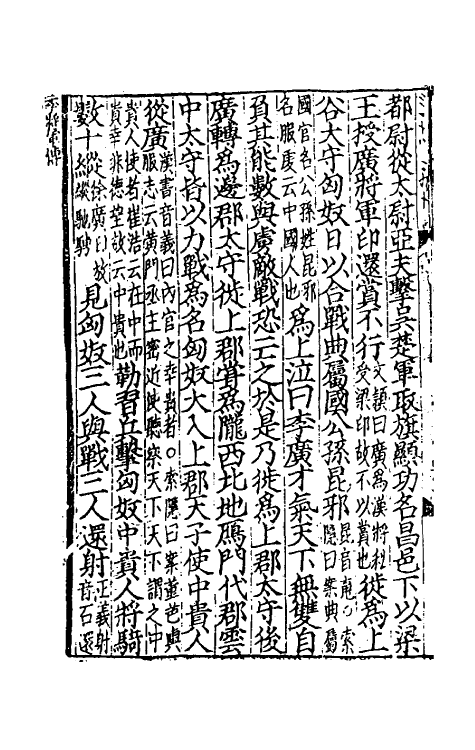 都尉從太尉亞夫擊吳楚軍取旗顯功名昌邑下以梁
王授廣將軍印還賞不行文穎曰廣爲漢將私受梁印故不以賞也徙爲上
谷太守匈奴日以合戰典屬國公孫昆邪昆音䰟○索隱曰案典屬
國官名公孫姓昆邪名服虔云中國人也爲上泣曰李廣才氣天下無雙自
負其能數與虜敵戰恐亡之於是乃徙爲上郡太守後
廣轉爲邊郡太守徙上郡甞爲隴西北地鴈門代郡雲
中太守皆以力戰爲名匈奴大入上郡天子使中貴人
從廣漢書音義曰內官之幸貴者○索隱曰案董巴輿服志云黃門丞主密近使聽察天下天下謂之中
貴人使者崔浩云在中而貴幸非德望故云中貴也勒習兵擊匈奴中貴人將騎
數十縱徐廣曰放縱馳騁見匈奴三人與戰三人還射正義射音石還
李將軍傳